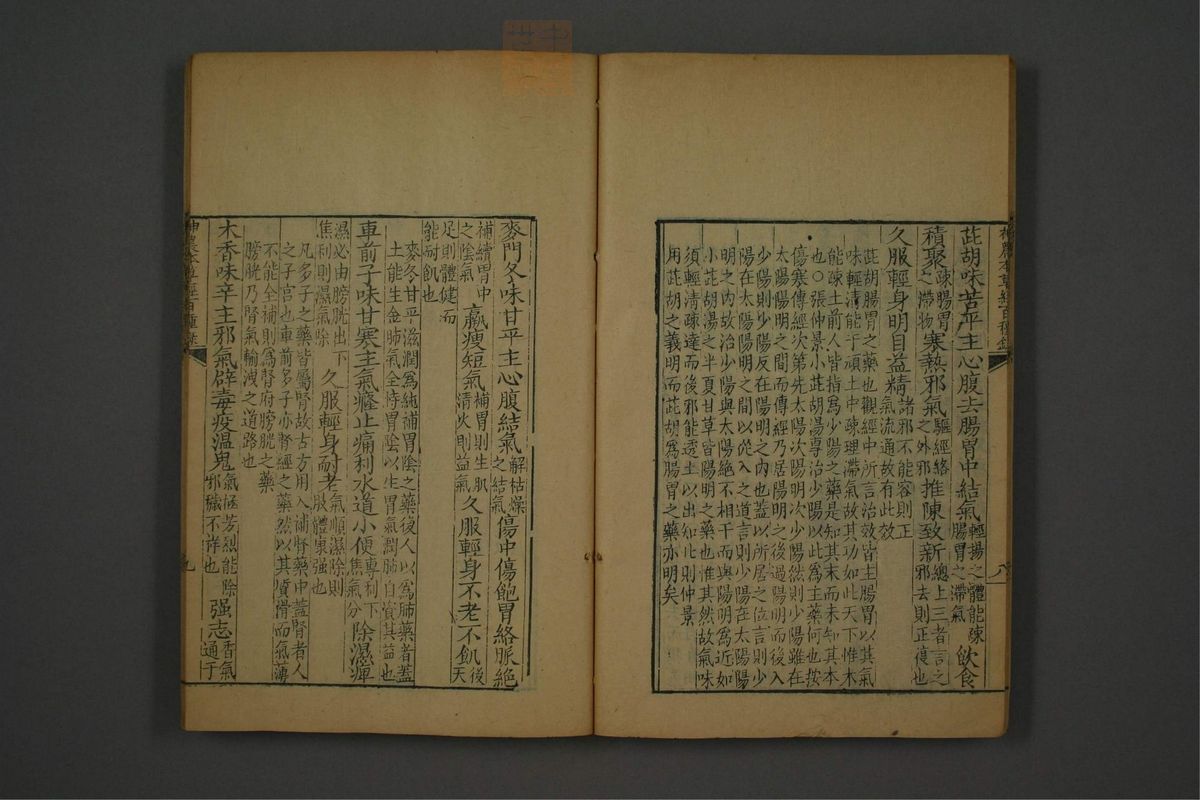 茈胡味苦平主心腹去腸胃中結氣輕揚之體能疎腸胃之滯氣飲食
積聚疎腸胃之滯物寒熱邪氣驅經絡之外邪推陳致新總上三者言之邪去則正復也
久服輕身明目益精諸邪不能容則正氣流通故有此效
茈胡腸胃之藥也觀經中所言治效皆主腸胃以其氣
味輕清能于頑土中疎理滯氣故其功如此天下惟木
能疎土前人皆指為少陽之藥是知其末而未知其本
也○張仲景小茈胡湯專治少陽以此爲主藥何也按
傷寒傳經次第先太陽次陽明次少陽然則少陽雖在
太陽陽明之間而傳經乃居陽明之後過陽明而後入
少陽則少陽反在陽明之內也蓋以所居之位言則少
陽在太陽陽明之間以從入之道言則少陽在太陽陽
明之內故治少陽與太陽絕不相干而與陽明爲近如
小茈胡湯之半夏甘草皆陽明之藥也惟其然故氣味
須輕清疎達而後邪能透土以出知此則仲景
用茈胡之義明而茈胡爲腸胃之藥亦明矣
神農本草經百種錄
八
麥門冬味甘平主心腹結氣解枯燥之結氣傷中傷飽胃絡脈絶
補續胃中之陰氣羸瘦短氣補胃則生肌清火則益氣久服輕身不老不飢後天
足則體健而能耐飢也
麥冬甘平滋潤爲純補胃陰之藥後人以爲肺藥者蓋
土能生金肺氣全恃胃陰以生胃氣潤肺自資其益也
車前子味甘寒主氣癃止痛利水道小便專利下焦氣分除濕痺
濕必由膀胱出下焦利則濕氣除久服輕身耐老氣順濕除則肢體康强也
凡多子之藥皆屬腎故古方用入補腎藥中蓋腎者人
之子宮也車前多子亦腎經之藥然以其質滑而氣薄
不能全補則爲腎府膀胱之藥
膀胱乃腎氣輸洩之道路也
木香味辛主邪氣辟毒疫溫鬼氣極芳烈能除邪穢不祥也强志香氣通于
神農本草經百種錄
九